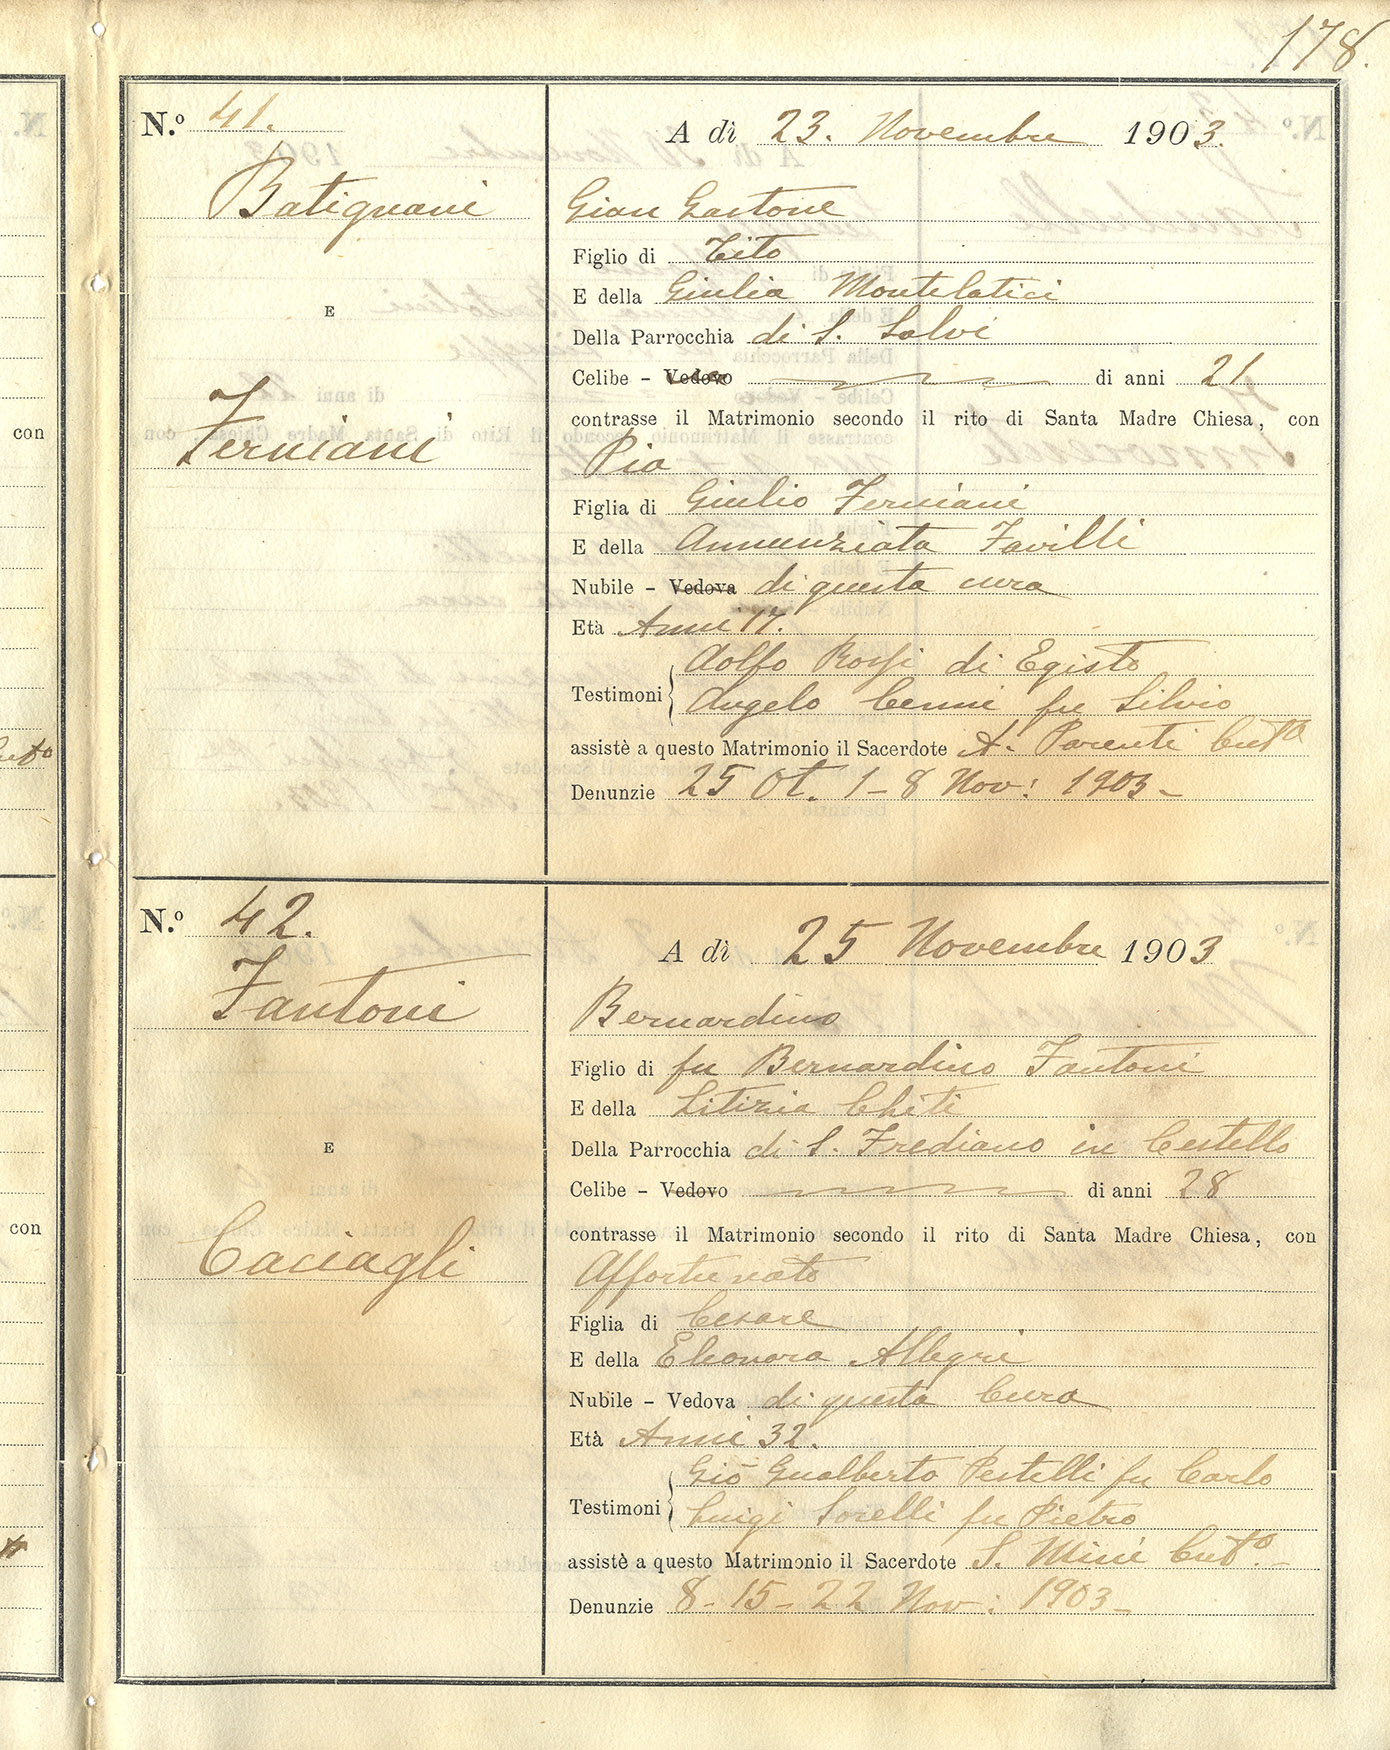 178.
N.º 41.
Batignani
E
Ferniani
A dì 23. Novembre 1903.
Gian Gastone
Figlio di Tito
E della Giulia Montelatici
Della Parrocchia di S. Salvi
Celibe - Vedovo di anni 21
contrasse il Matrimonio secondo il rito di Santa Madre Chiesa, con
Pia
Figlia di Giulio Ferniani
E della Annunziata Favilli
Nubile - Vedova di questa cura
Età Anni 17.
Adolfo Rossi di Egisto
Testimoni
Angelo Cenni fu Silvio
assistè a questo Matrimonio il Sacerdote A. Parenti Curto
Denunzie 25 Ot. 1 - 8 Nov: 1903 -
N.º 42.
Fantoni
E
Caciagli
A dì 25 Novembre 1903
Bernardino
Figlio di fu Bernardino Fantoni
E della Litizia Chiti
Della Parrocchia di S. Frediano in Cestello
Celibe - Vedovo di anni 28
contrasse il Matrimonio secondo il rito di Santa Madre Chiesa, con
Affortunata
Figlia di Cesare
E della Eleonora Allegri
Nubile - Vedova di questa Cura
Età Anni 32.
Gio Gualberto Pestelli fu Carlo
Testimoni
Luigi Sorelli fu Pietro
assistè a questo Matrimonio il Sacerdote S. Mini Curto. -
Denunzie 8 - 15 - 22 Nov: 1903 -
con
con